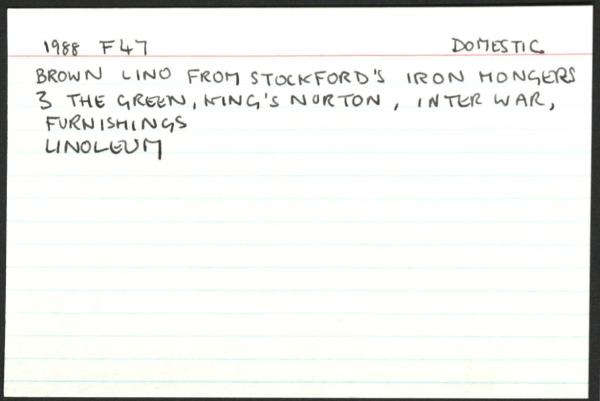 1988 F47 DOMESTIC
BROWN LINO FROM STOCKFORD'S IRON MONGERS
3 THE GREEN, KING'S NORTON, INTER WAR,
FURNISHINGS
LINOLEUM